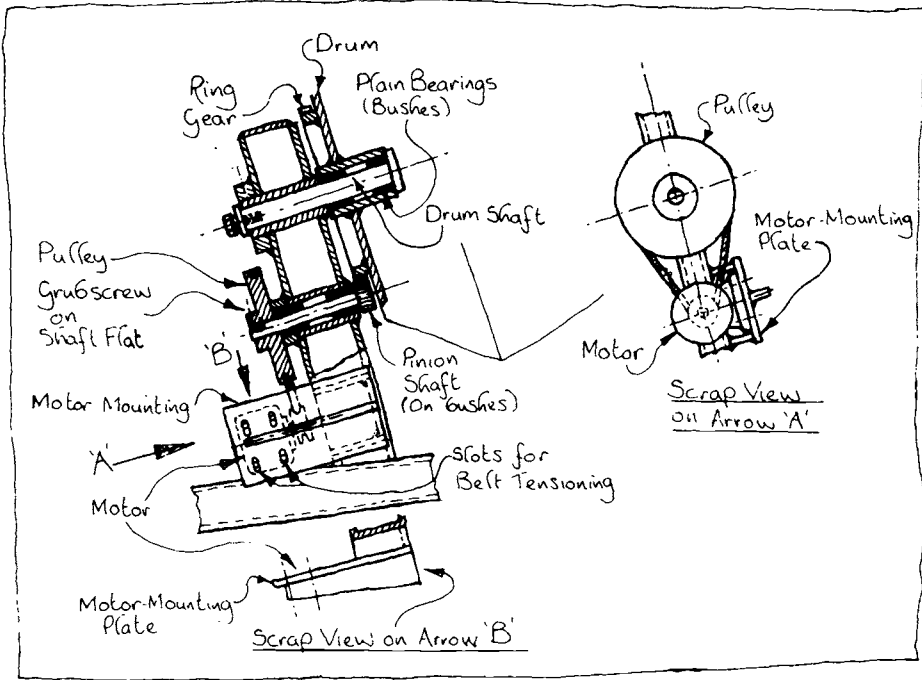 Drum
Ring
Gear
Plain Bearings
(Bushes)
Drum Shaft
Pulley
Grubscrew
on
Shaft Flat
'B'
Motor Mounting
Pinion
Shaft
(On bushes)
'A'
Slots for
Belt Tensioning
Motor
Motor-Mounting
Plate
Scrap View on Arrow 'B'
Pulley
Motor-Mounting
Plate
Motor
Scrap View
on Arrow 'A'